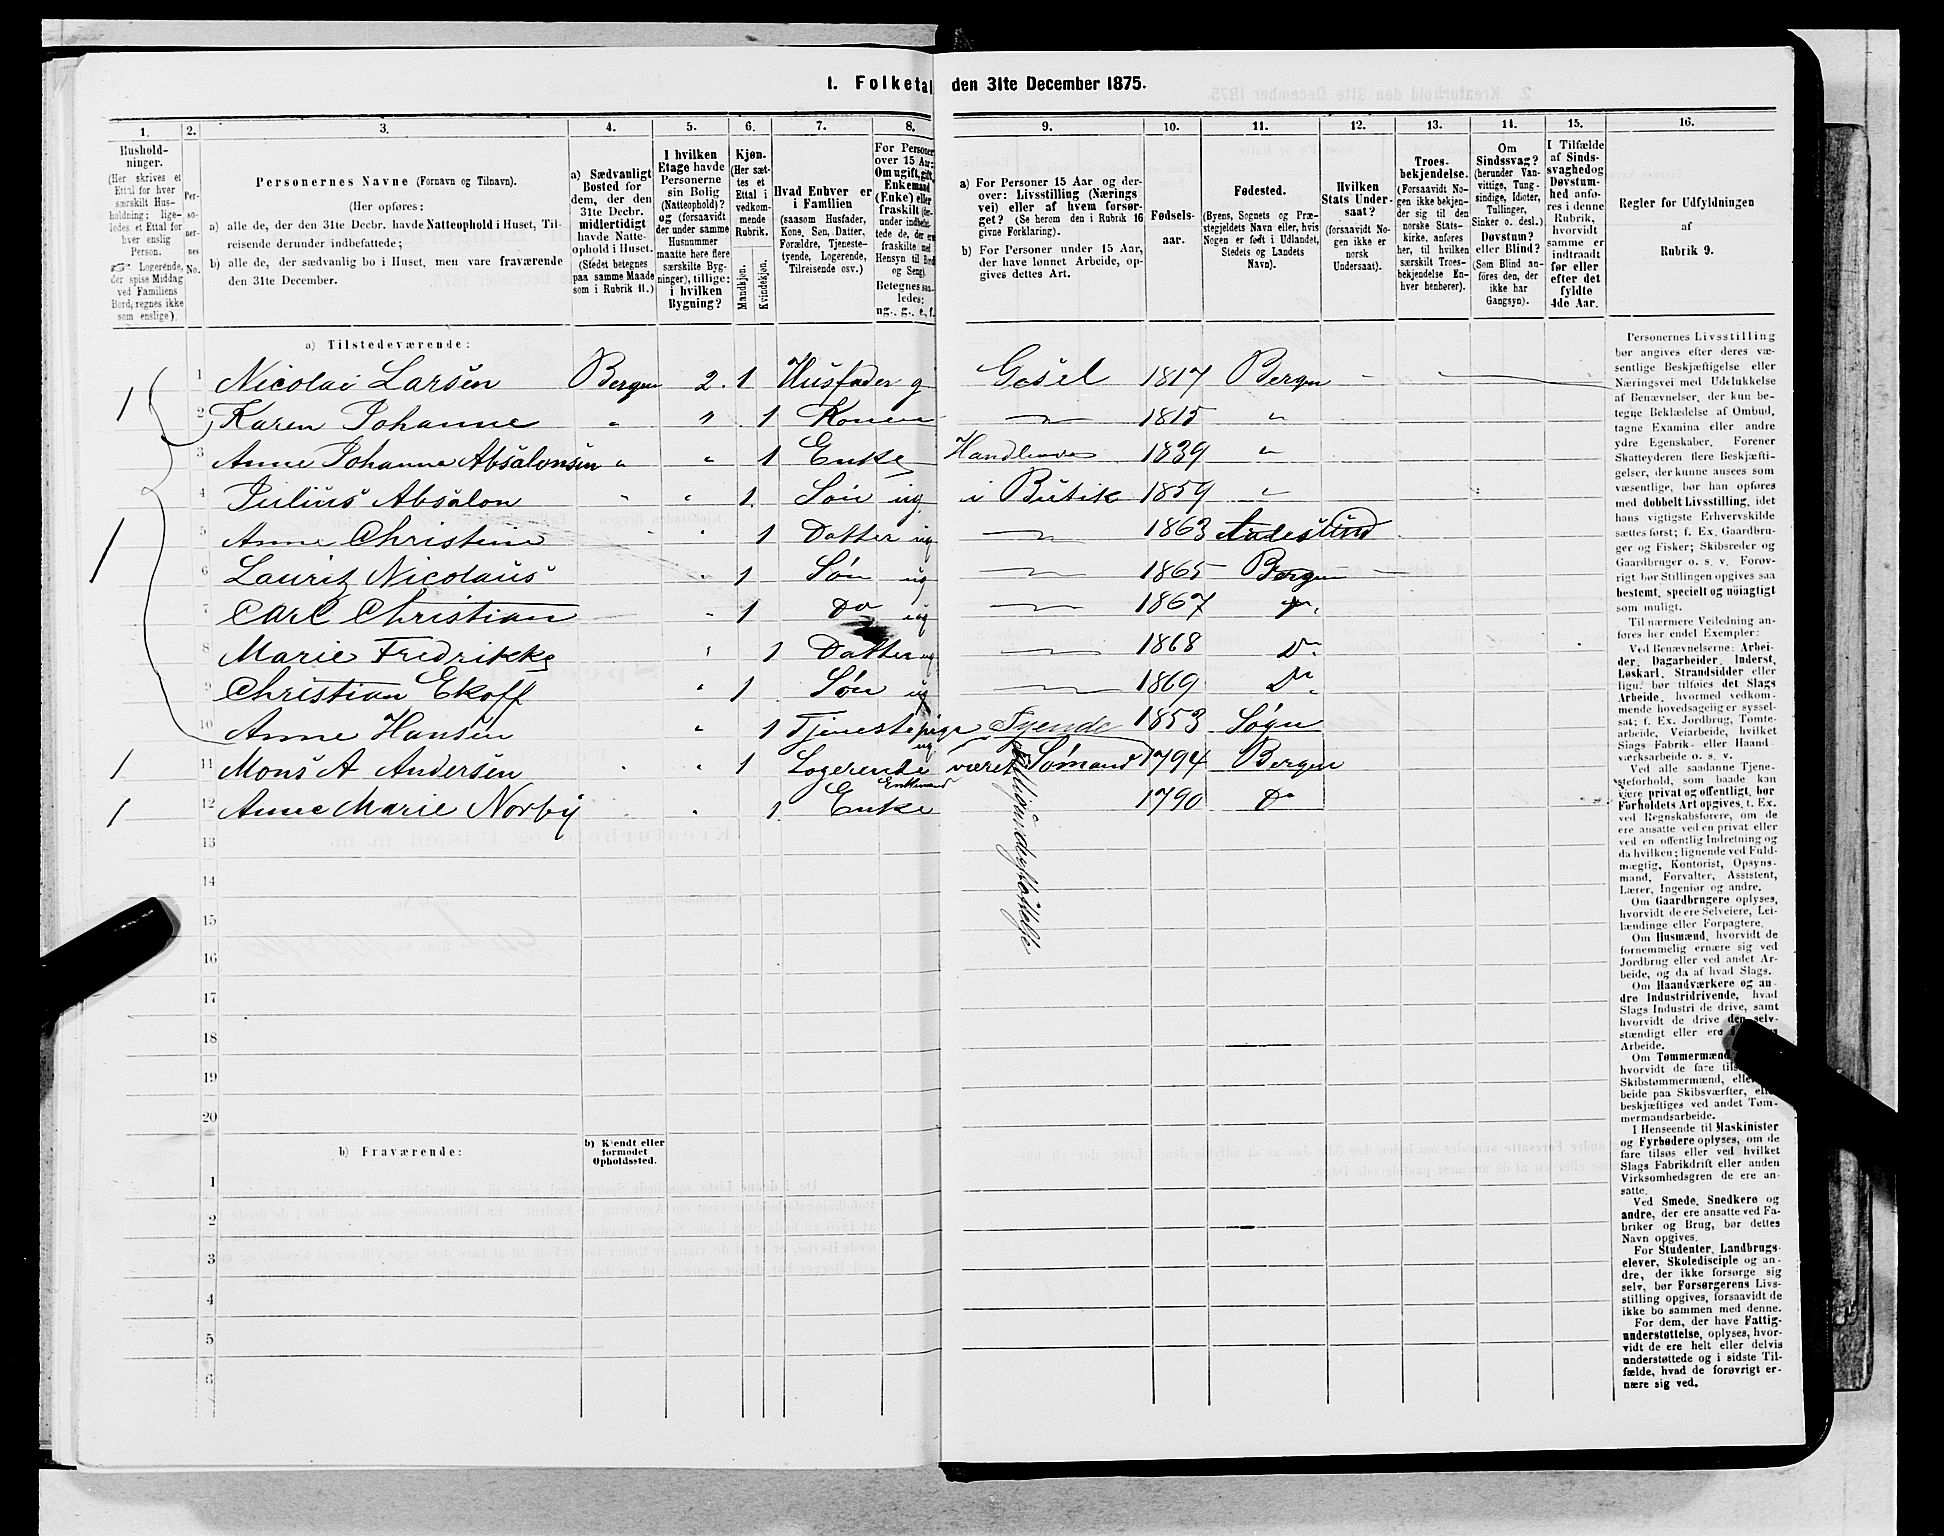 1. Folketal den 31te December 1875.
1. 2. 3. 4. 5. 6. 7. 8. 9. 10. 11. 12. 13. 14. 15. 16.
Hushold-
ninger.
(Her skrives et
Ettal for hver
særskilt Hus-
holdning; lige-
ledes et Ettal for
hver enslig
Person.
Logerende,
der spise Middag
ved Familiens
Bord, regnes ikke
som enslige).
Per-
so-
ner-
nes
No.
Personernes Navne (Fornavn og Tilnavn).
(Her opføres:
a) alle de, der den 31te Decbr. havde Natteophold i Huset, Til-
reisende derunder indbefattede;
b) alle de, der sædvanlig bo i Huset, men vare fraværende
den 31te December.
a) Sædvanligt
Bosted for
dem, der den
31te Decbr.
midlertidigt
havde Natte-
ophold i Huset.
(Stedet betegnes
paa samme Maade
som i Rubrik 11.)
I hvilken
Etage havde
Personerne
sin Bolig
(Natteophold)?
og (forsaavidt
der under samme
Husnummer
maatte høre flere
særskilte Byg-
ninger), tillige:
i hvilken
Bygning?
Kjøn.
(Her sæt-
tes et
Ettal i
vedkom-
mende
Rubrik.
Mandkjøn.
Kvindekjøn.
Hvad Enhver er
i Familien
(saasom Husfader,
Kone, Søn, Datter,
Forældre, Tjeneste-
tyende, Logerende,
Tilreisende osv.)
For Personer
over 15 Aar:
Om ugift, gift,
Enkemand
(Enke) eller
fraskilt
Betegnes saa-
ledes:
ug., g., e., f.
a) For Personer 15 Aar og der-
over: Livsstilling (Nærings-
vei) eller af hvem forsør-
get? (Se herom den i Rubrik 16
givne Forklaring).
b) For Personer under 15 Aar,
der have lønnet Arbeide, op-
gives dettes Art.
Fødsels-
aar.
Fødested.
(Byens, Sognets og Præ-
stegjeldets Navn eller, hvis
Nogen er født i Udlandet,
Stedets og Landets
Navn).
Hvilken
Stats Under-
saat?
(forsaavidt No-
gen ikke er
norsk
Undersaat).
Troes-
bekjendelse.
(Forsaavidt No-
gen ikke bekjen-
der sig til den
norske Stats-
kirke, anføres
her, til hvilken
særskilt Troes-
bekjendelse En-
hver henhører).
Om
Sindssvag?
(herunder Van-
vittige, Tung-
sindige, Idioter,
Tullinger,
Sinker o. desl.)
Døvstum?
eller Blind?
(Som Blind an-
føres den, der
ikke har
Gangsyn).
I Tilfælde
af Sinds-
svaghed og
Døvstum-
hed anfø-
res i denne
Rubrik,
hvorvidt
samme er
indtraadt
før eller
efter det
fyldte
4de Aar.
Regler for Udfyldningen
af
Rubrik 9.
a) Tilstedeværende:
1 1 Nicolai Larsen Bergen 2. 1 Husfader g Gosel 1817 Bergen
2 Karen Johanne " " 1 Konen 1815 "
3 Anne Johanne Absalonsen " " 1 Enke 1839 "
4 Julius Absalon " " 1 Søn ug i Butik 1859 "
1 5 Anne Christine " 1 Datter ug 1863
6 Lauritz Nicolaus " 1 Søn ug 1865 Bergen
7 Carl Christian " 1 Do ug 1867
8 Marie Fredrikke " 1 Datter ug 1868 Do
9 Christian Ekoff " 1 Søn ug 1869 Do
10 Anne Hansen " 1 Tjenestepige ug Tyende 1853 Sogn
1 11 Mons A Andersen " 1 Logerende Enkemand været Sømand 1794 Bergen
1 12 Anne Marie Norby " 1 Enke 1790 Do
13
14
15
16
17
18
19
20
b) Fraværende:
b) Kjendt eller
formodet
Opholdssted.
1
2
3
4
5
6
Personernes Livsstilling
bør angives efter deres væ-
sentlige Beskjæftigelse eller
Næringsvei med Udelukkelse
af Benævnelser, der kun be-
tegne Beklædelse af Ombud,
tagne Examina eller andre
ydre Egenskaber. Forener
Skatteyderen flere Beskjæfti-
gelser, der kunne ansees som
væsentlige, bør han opføres
med dobbelt Livsstilling, idet
hans vigtigste Erhvervskilde
sættes først; f. Ex. Gaardbru-
ger og Fisker; Skibsreder og
Gaardbruger o. s. v. Forøv-
rigt bør Stillingen opgives saa
bestemt, specielt og nøiagtigt
som muligt.
Til nærmere Veiledning an-
føres her endel Exempler:
Ved Benævnelserne: Arbei-
der, Dagarbeider, Inderst,
Løskarl, Strandsidder eller
lign. bør tilføies det Slags
Arbeide, hvormed vedkom-
mende hovedsagelig er syssel-
sat; f. Ex. Jordbrug, Tomte-
arbeide, Veiarbeide, hvilket
Slags Fabrik- eller Haand-
værksarbeide o. s. v.
Ved alle saadanne Tjene-
steforhold, som baade kan
være privat og offentligt, bør
Forholdets Art opgives, t. Ex.
ved Regnskabsførere, om de
ere ansatte ved en privat eller
ved en offentlig Indretning og
da hvilken; lignende ved Fuld-
mægtig, Kontorist, Opsyns-
mand, Forvalter, Assistent,
Lærer, Ingeniør og andre.
Om Gaardbrugere oplyses,
hvorvidt de ere Selveiere, Lei-
lændinge eller Forpagtere.
Om Husmænd, hvorvidt de
fornemmelig ernære sig ved
Jordbrug eller ved andet Ar-
beide, og da af hvad Slags.
Om Haandværkere og an-
dre Industridrivende, hvad
Slags Industri de drive, samt
hvorvidt de drive den selv-
stændigt eller ere
Arbeide.
Om Tømmermænd
hvorvidt de fare
Skibstømmermænd,
beide paa Skibsværfter,
beskjæftiges ved andet Tøm-
mermandsarbeide.
I Henseende til Maskinister
og Fyrbødere oplyses, om de
fare tilsøs eller ved hvilket
Slags Fabrikdrift eller anden
Virksomhedsgren de ere an-
satte.
Ved Smede, Snedkere og
andre, der ere ansatte ved Fa-
briker og Brug, bør dettes
Navn opgives.
For Studenter, Landbrugs-
elever, Skoledisciple og an-
dre, der ikke forsørge sig
selv, bør Forsørgerens Livs-
stilling opgives, forsaavidt de
ikke bo sammen med denne.
For dem, der have Fattig-
understøttelse, oplyses, hvor-
vidt de ere helt eller delvis
understøttede og i sidste Til-
fælde, hvad de forøvrigt er-
nære sig ved.